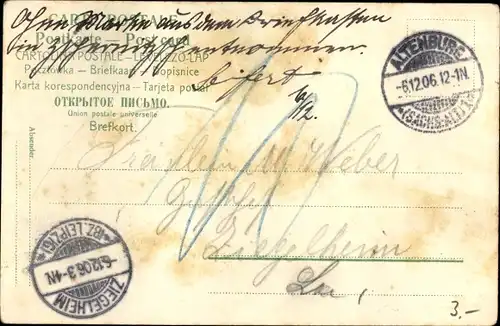 Ohne Marke aus dem Briefkasten
in
entnommen.
6/12.
Postkarte — Post card
CARTOLINA POSTALE — LEVELEZŐ-LAP
Pocztówka — Briefkaart — Dopisnice
Karta korespondencyjna — Tarjeta postal
ОТКРЫТОЕ ПИСЬМО.
Union postale universelle
Brefkort.
Absender.
ALTENBURG
-6.12.06.12-1N.
(SACHS.-ALT.)
Fräulein M. Weber
Ziegelheim
ZIEGELHEIM
-6.12.06.3-4N.
(BZ. LEIPZIG)
3.-